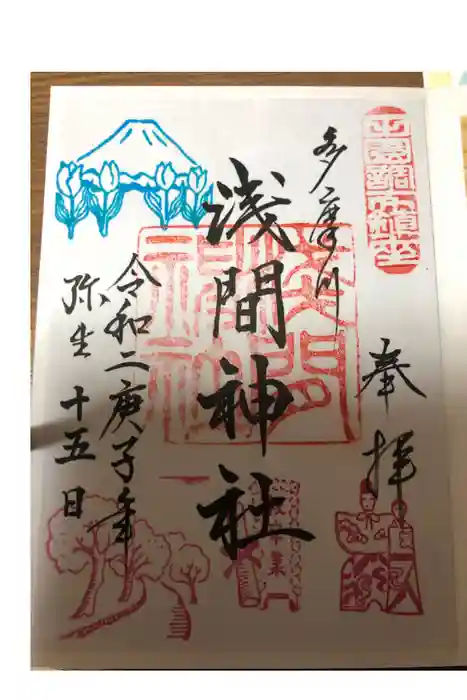 奉拝
多摩川
浅間神社
令和二庚子年
弥生 十五日
浅間神社